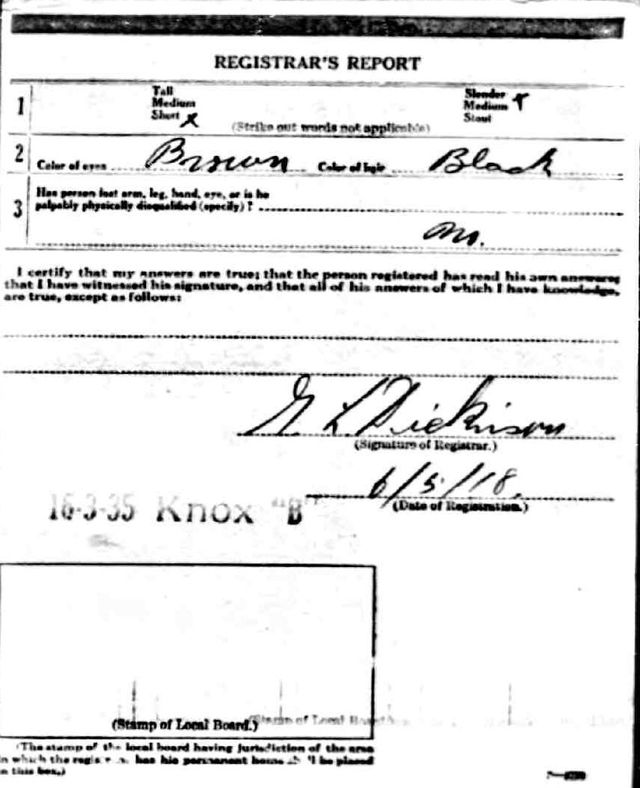 REGISTRAR'S REPORT
1
Tall
Medium
Short x
Slender
Medium x
Stout
(Strike out words not applicable)
2 Color of eyes Brown Color of hair Black
3 Has person lost arm, leg, hand, eye, or is he
palpably physically disqualified (specify)?
No.
I certify that my answers are true; that the person registered has read his own answers;
that I have witnessed his signature, and that all of his answers of which I have knowledge,
are true, except as follows:
L Dickinson
(Signature of Registrar.)
6/5/18.
(Date of Registration.)
16-3-35 Knox "B"
(Stamp of Local Board.) (Stamp of Local Board.)
(The stamp of the local board having jurisdiction of the area
in which the has his permanent home be placed
in this box.)